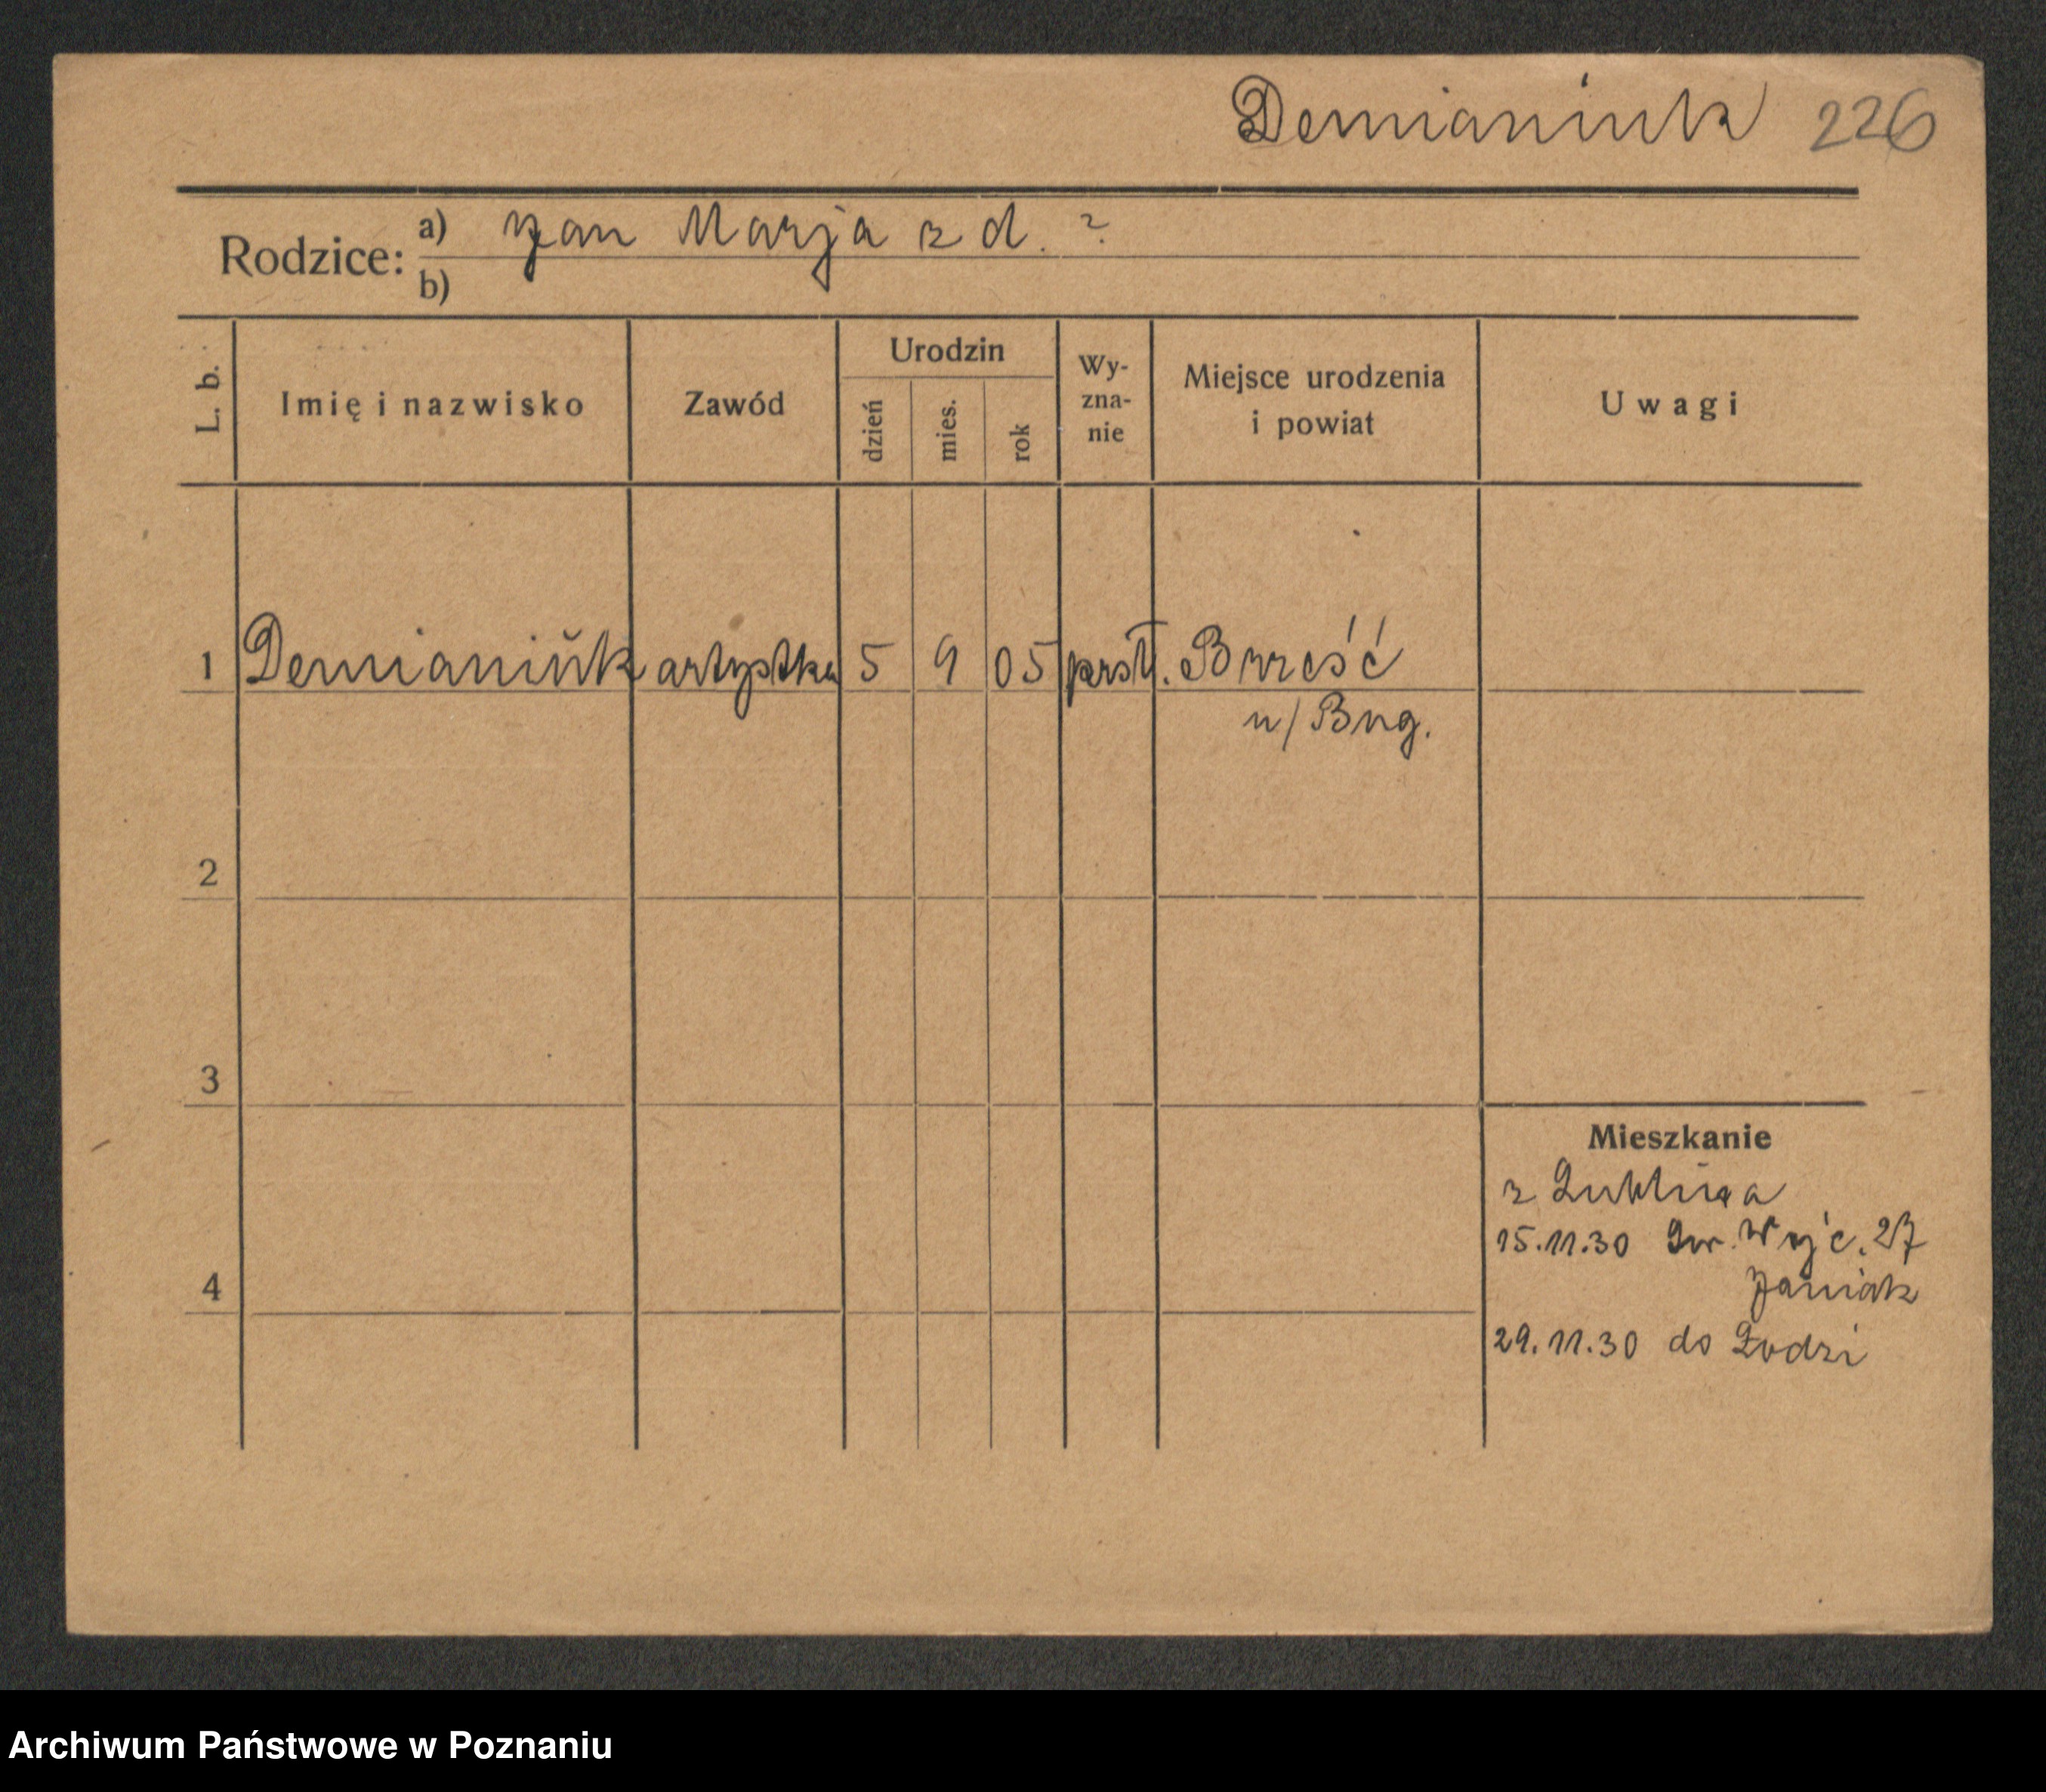 Demianiuk 226
Rodzice: a) Jan Marja z d. ?
b)
L. b. Imię i nazwisko Zawód Urodzin dzień mies. rok Wy-zna-nie Miejsce urodzenia i powiat Uwagi
1 Demianiuk artystka 5 9 05 Brześć
n/Bug.
2
3
Mieszkanie
z Lublina
15.11.30 Wojc. 27
4 Janiak
29.11.30 do Łodzi
Archiwum Państwowe w Poznaniu